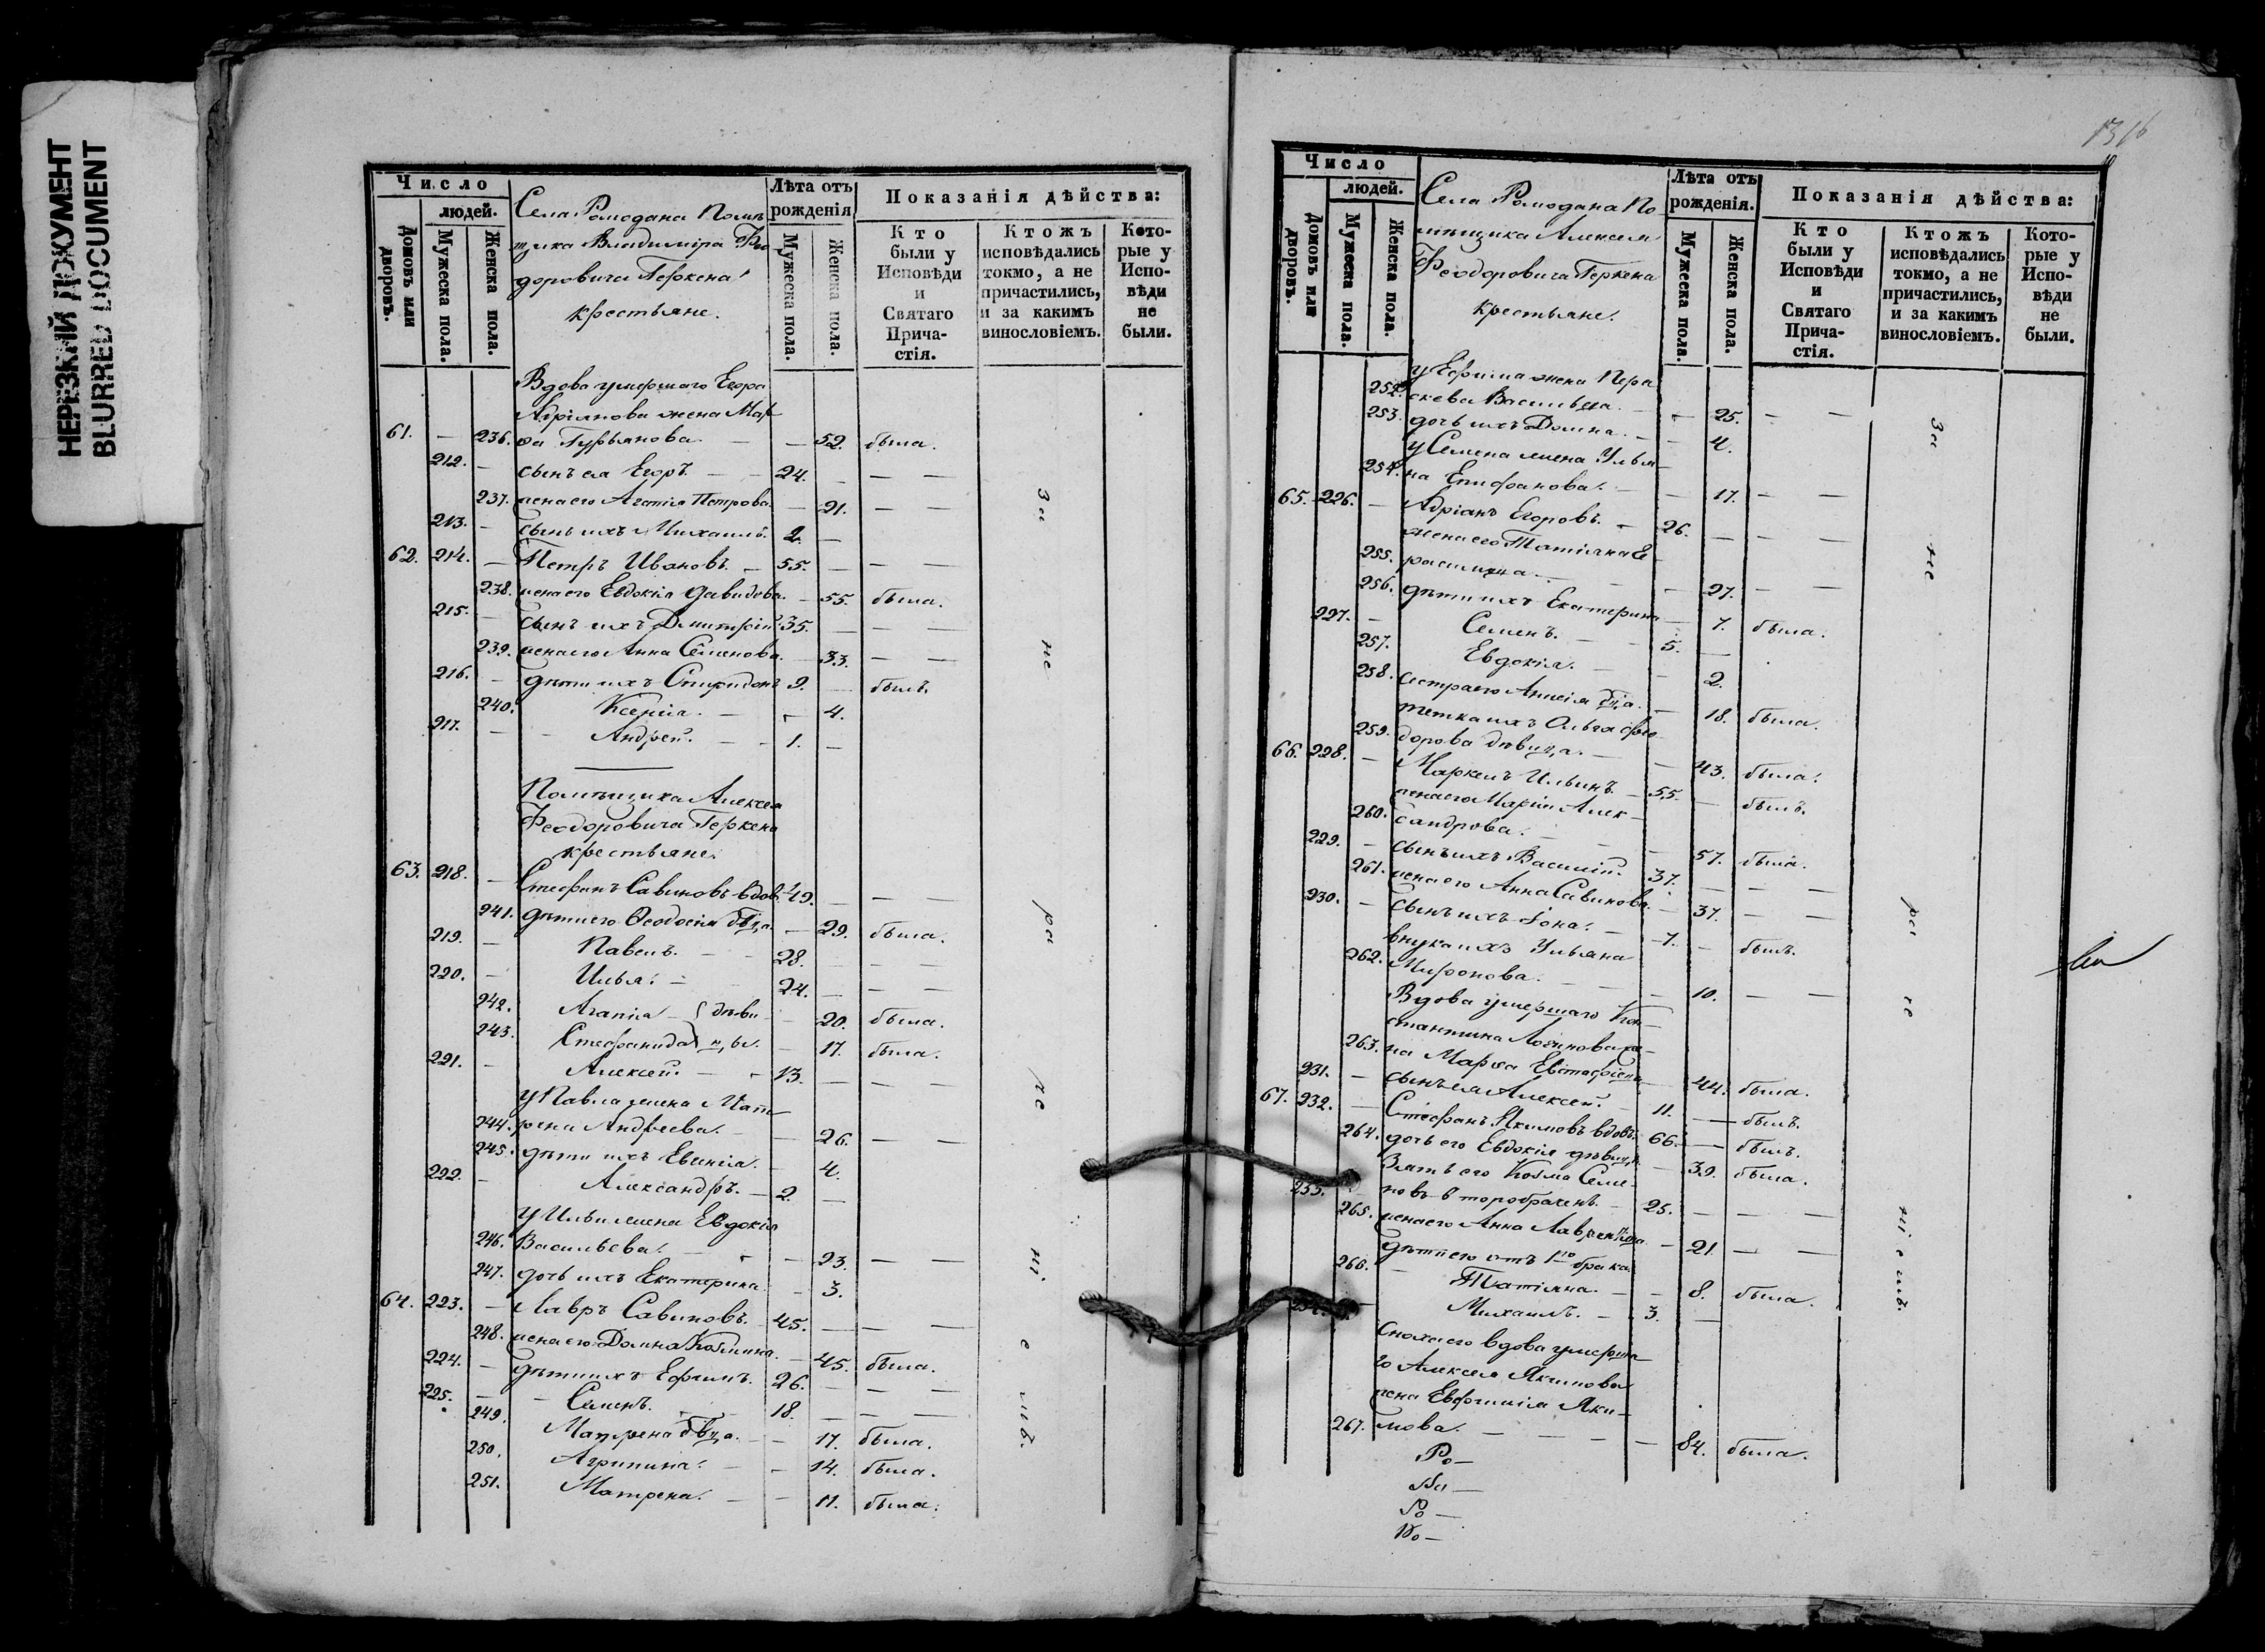 НЕРЕЗКИЙ ДОКУМЕНТ
BLURRED DOCUMENT
Число
людей.
Домовъ или дворовъ.
Мужеска пола.
Женска пола.
Села Ромодана Помѣ-
щика Владиміра Фео
доровича Геркена
крестьяне.
Лѣта отъ рожденія
Мужеска пола.
Женска пола.
Показанія дѣйства:
Кто были у Исповѣди и Святаго Прича-стія.
Ктожъ исповѣдались токмо, а не причастились, и за какимъ винословіемъ.
Кото-рые у Испо-вѣди не были.
Вдова умершаго Егора
Адріянова жена Мар
61. — 236. ѳа Гурьянова. — — 52. была.
212. — сынъ ея Егоръ. — 24. — — —
237. жена его Агапія Петрова. — 21. — —
213. — сынъ ихъ Михаилъ. 2. —
62. 214. — Петръ Ивановъ. — 55. — — —
238. жена его Евдокія Давидова. — 55. была.
215. — сынъ ихъ Дмитрій. 35. — — —
239. жена его Анна Семенова. — 33. — —
216. — дѣти ихъ Спиридонъ 9. — былъ.
240. Ксенія. — — 4.
217. — Андрей. — 1. —
Помѣщика Алексея
Феодоровича Геркена
крестьяне.
63. 218. — Стефанъ Савиновъ вдов. 49. — — —
241. дѣти его Ѳеодосія дѣвца. — 29. была.
219. — Павелъ. — 28. — — —
220. — Илья. — 24. — — —
242. Агапія — } дѣви — 20. была.
243. Стефанида } цы. — 17. была.
221. — Алексей. — 13. — — —
у Павла жена Мат-
244. рена Андреева. — — 26. — —
245. дѣти ихъ Евгенія. — 4.
222. — Александръ. — 2. —
у Ильи жена Евдокія
246. Васильева. — — 23. — —
247. дочь ихъ Екатерина — 3.
64. 223. — Лавръ Савиновъ. 45. — — —
248. жена его Домна Козмина. — 45. была.
224. — дѣти ихъ Ефимъ. 26. — — —
225. — Семенъ. 18. — — —
249. Матрена дѣвца. — 17. была.
250. Агрипина. — 14. была.
251. Матрена. — — 11. была.
За не ра не ні е мъ.
1316
Число
людей.
Домовъ или дворовъ.
Мужеска пола.
Женска пола.
Села Ромодана По-
мѣщика Алексея
Феодоровича Геркена
крестьяне.
Лѣта отъ рожденія.
Мужеска пола.
Женска пола.
Показанія дѣйства:
Кто были у Исповѣди и Святаго Прича-стія.
Ктожъ исповѣдались токмо, а не причастились, и за какимъ винословіемъ.
Кото-рые у Испо-вѣди не были.
у Ефима жена Пара
252. скева Васильева. — — 25. — —
253. дочь ихъ Домна. — — 4.
у Семена жена Улья-
254. на Епифанова. — — 17. — —
65. 226. — Адріанъ Егоровъ. — 26. — — —
жена его Татіяна Ге
255. расимова. — — 27. — —
256. дѣти ихъ Екатерина — 7. была.
227. — Семенъ. — 5. —
257. Евдокія. — — 2.
258. сестра его Анисія дѣвца. — 18. была.
тетка ихъ Ольга Фео
259. дорова дѣвица. — — 43. была.
66. 228. — Маркелъ Ильинъ. — 55. — былъ.
жена его Марія Алек-
260. сандрова. — — 57. была.
229. — сынъ ихъ Василій. 37. — — —
261. жена его Анна Савинова. — 37. — —
230. — сынъ ихъ Іона. — 7. — былъ.
внука ихъ Ульяна
262. Миронова. — — 10. — —
Вдова умершаго Кон-
стантина Логинова же-
263. на Марѳа Евстафіева — 44. была.
231. — сынъ ея Алексей. — 11. — былъ.
67. 232. — Стефанъ Якимовъ вдовъ. 66. — былъ.
264. дочь его Евдокія дѣвица. — 39. была.
Зять его Козма Семе-
233. новъ второбраченъ. — 25. — — —
265. жена его Анна Лаврентіева — 21. — —
дѣти его отъ 1го брака.
266. Татіяна. — — 8. была.
234. — Михаилъ. — 3. —
Сноха его вдова умерша-
го Алексея Якимова
жена Евфимія Яки-
267. мова. — — — — 84. была.
За не ра не ніемъ.
Ро—
Ва—
Ро—